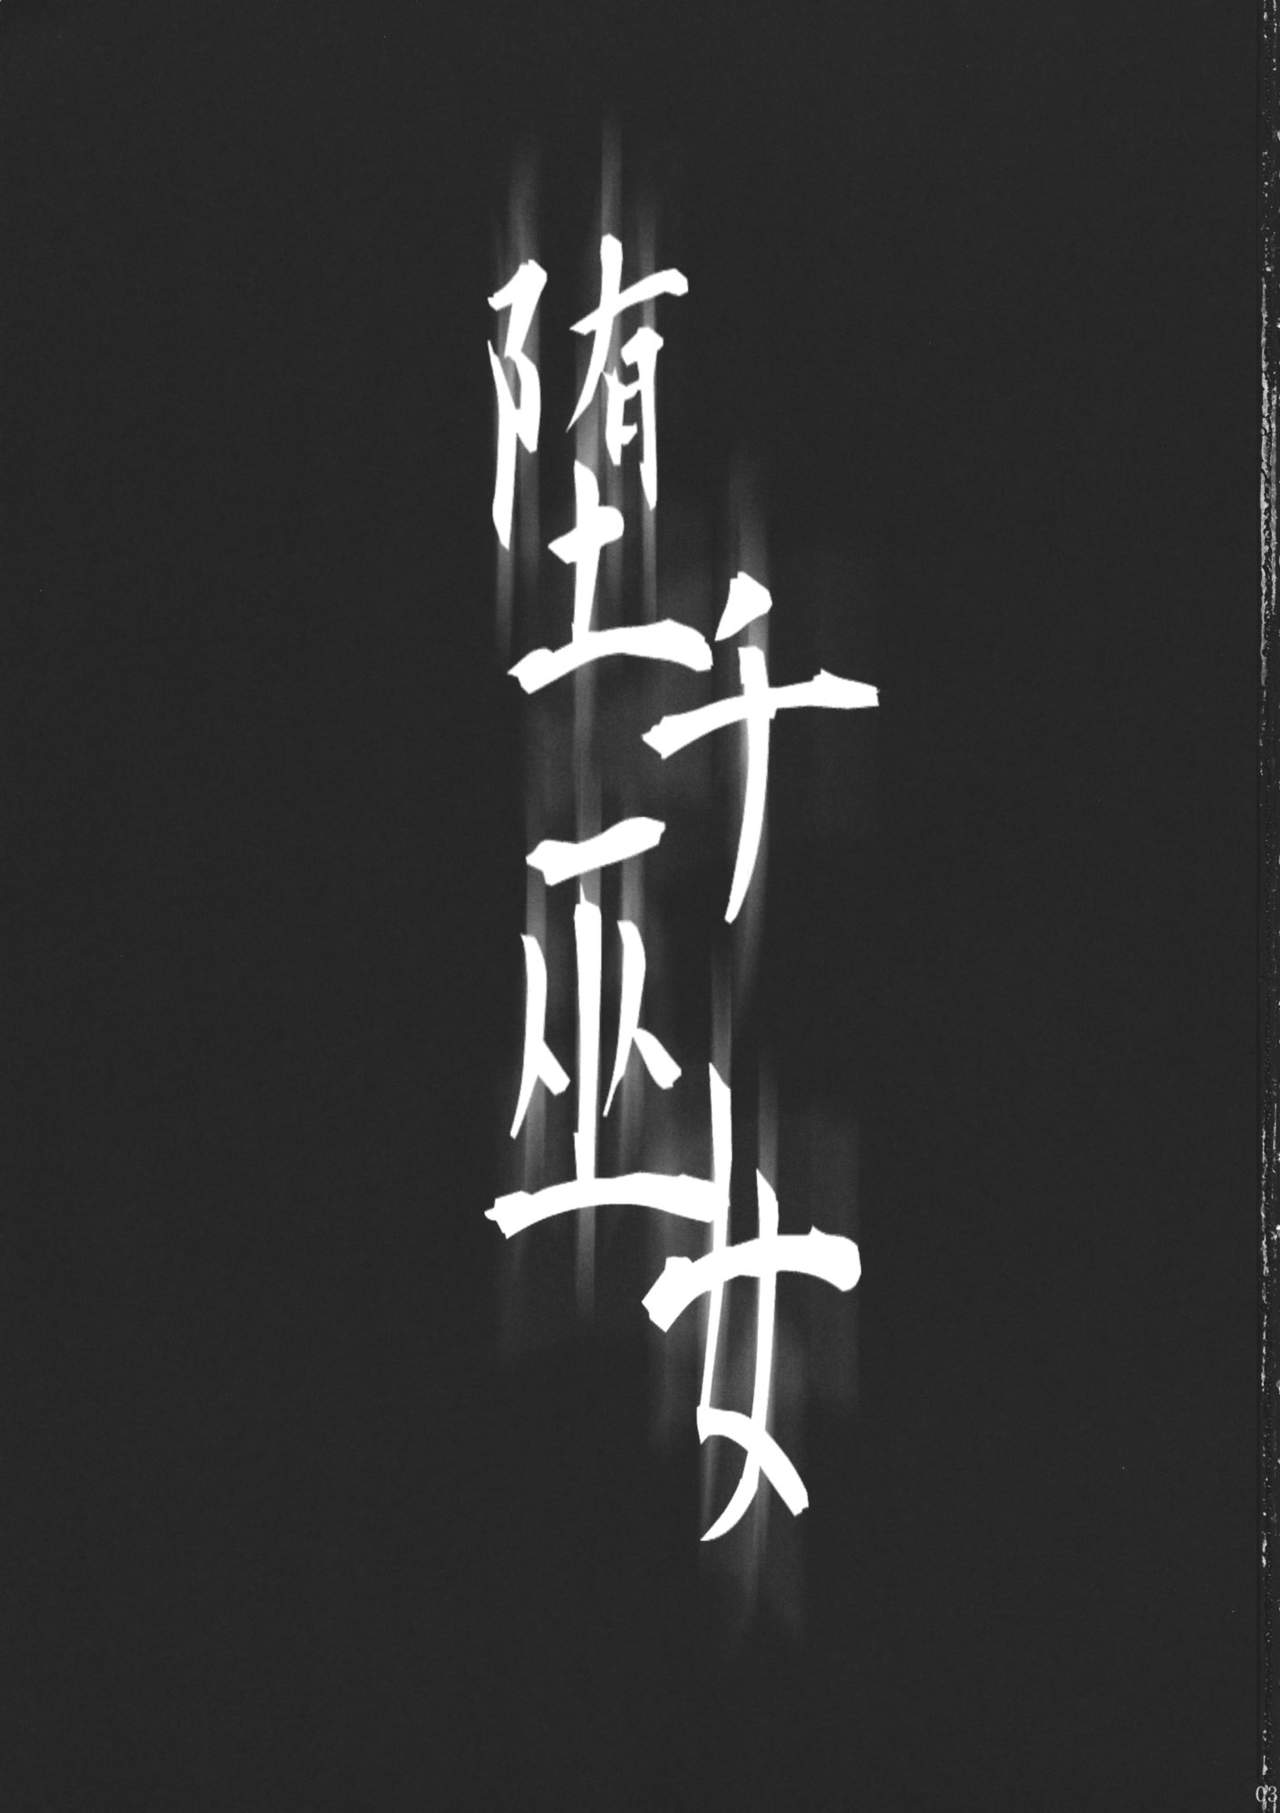 堕千巫女
03